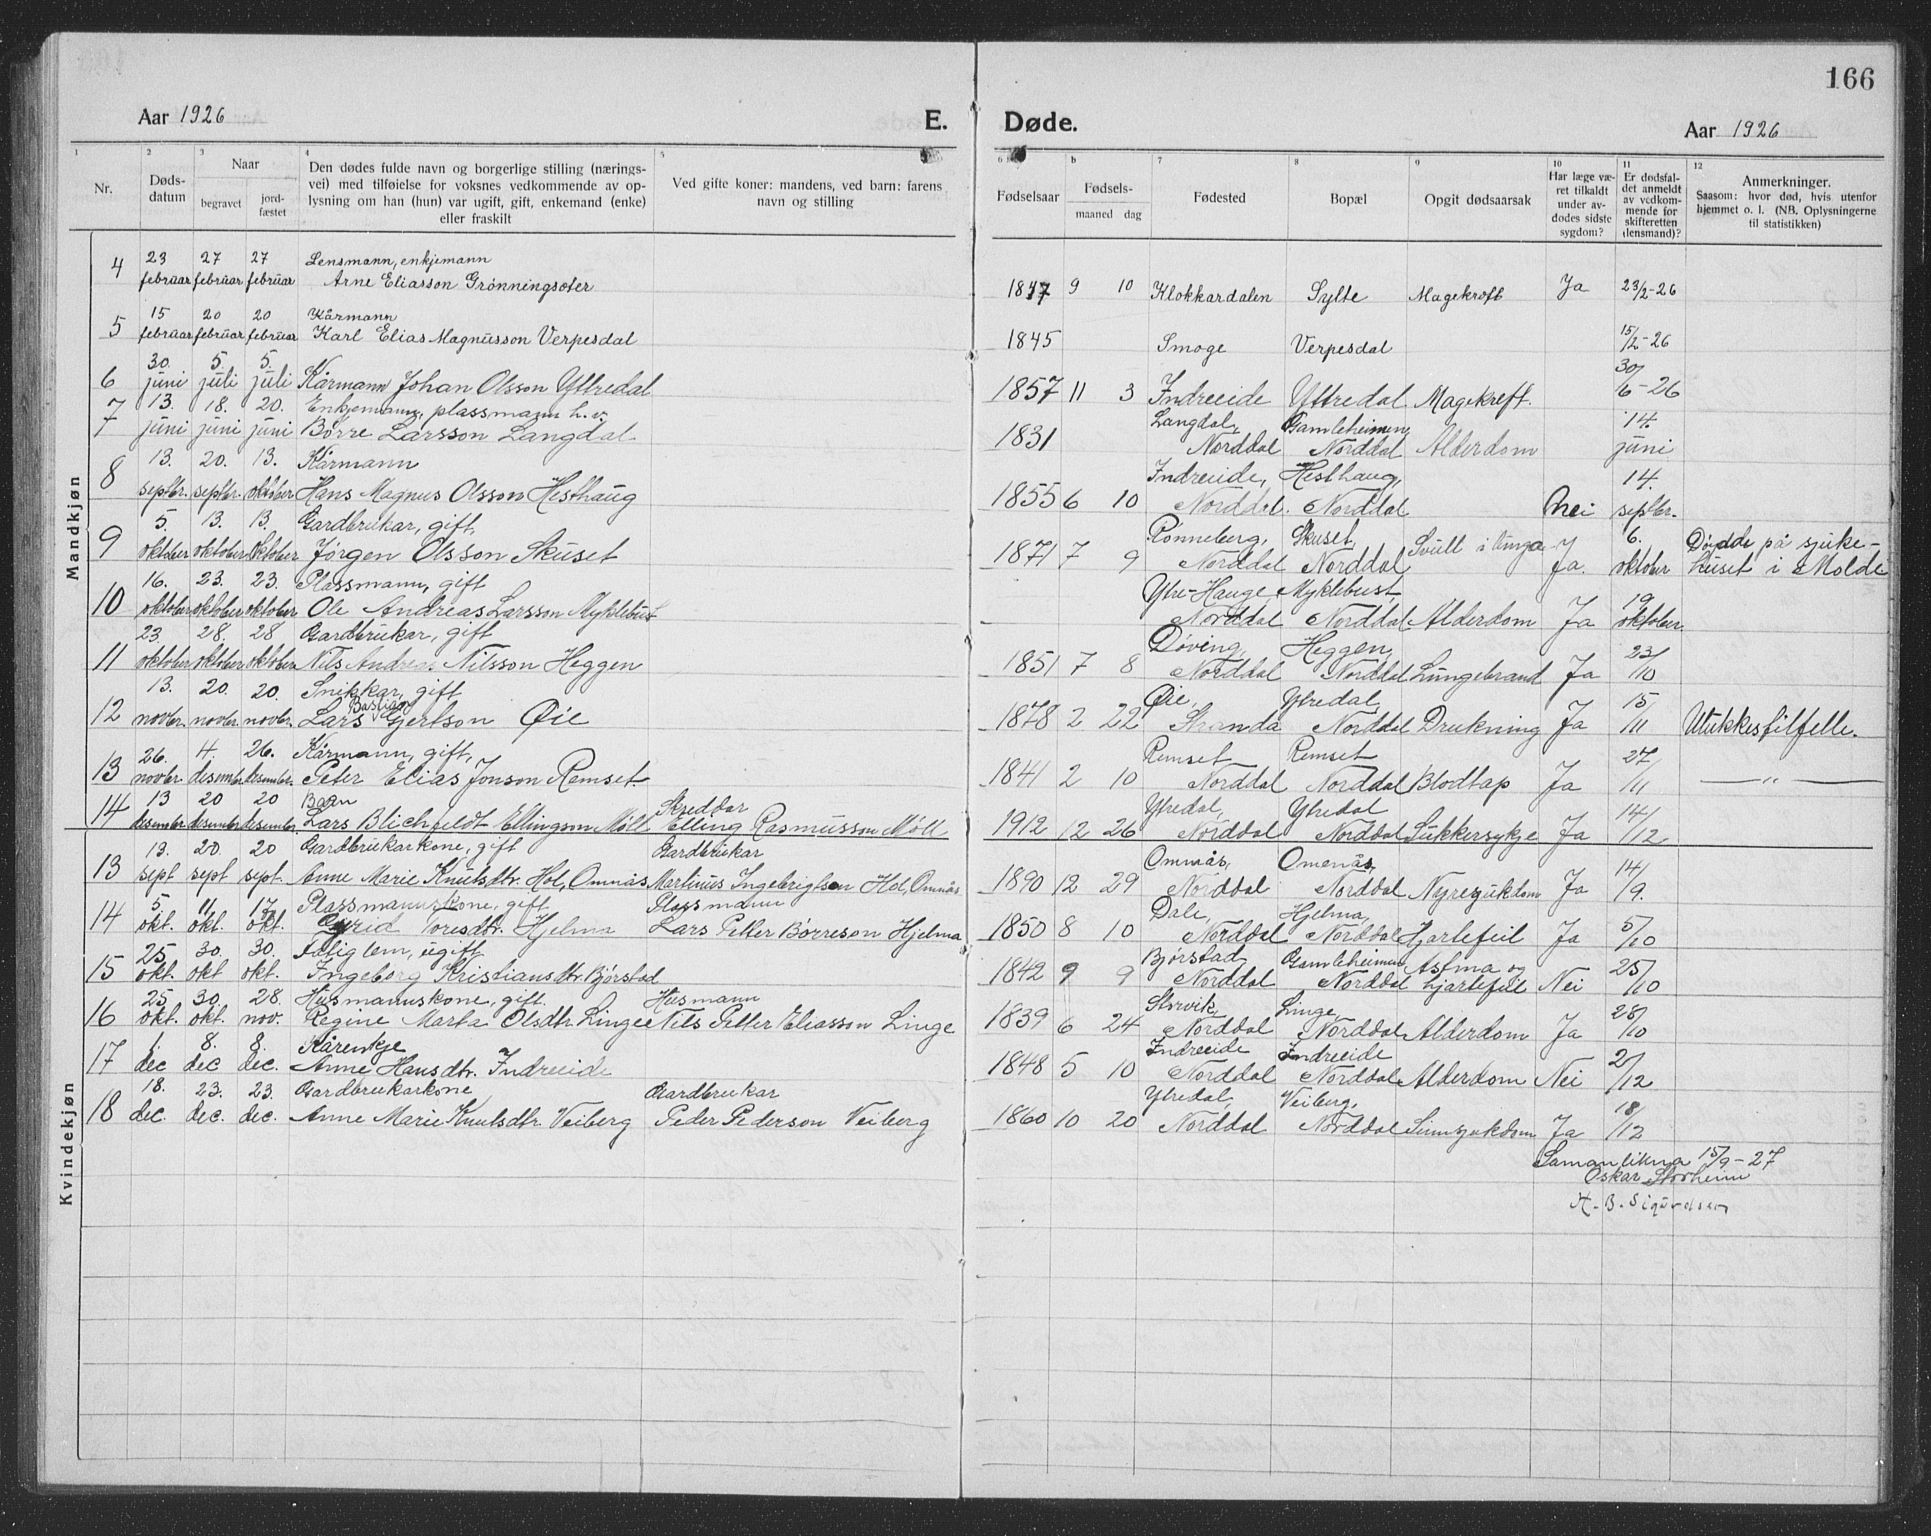 166
Aar 1926 E. Døde. Aar 1926
1 2 3 4 5 6 b 7 8 9 10 11 12
Nr. Døds-datum Naar begravet jord-fæstet
Den dødes fulde navn og borgerlige stilling (nærings-
vei) med tilføielse for voksnes vedkommende av op-
lysning om han (hun) var ugift, gift, enkemand (enke)
eller fraskilt
Ved gifte koner: mandens, ved barn: farens
navn og stilling
Fødselsaar Fødsels- maaned dag Fødested Bopæl Opgit dødsaarsak
Har læge væ-
ret tilkaldt
under av-
dødes sidste
sygdom?
Er dødsfal-
det anmeldt
av vedkom-
mende for
skifteretten
(lensmand)?
Anmerkninger.
Saasom: hvor død, hvis utenfor
hjemmet o. l. (NB. Oplysningerne
til statistikken)
Mandkjøn
23 27 27 Lensmann, enkjemann
4 februar februar februar Arne Eliasson Grønningsæter 1847 9 10 Klokkardalen Sylte Magekræft Ja 23/2-26
15 20 20 Kårmann
5 februar februar februar Karl Elias Magnusson Verpesdal 1845 Smoge Verpesdal 15/2-26
30. 5. 5. 30/
6 juni juli juli Kårmann Johan Olsson Yttredal 1857 11 3 Indreeide Yttredal Magekreft. 6-26
13. 18. 20. Enkjemann, plassmann h.v. Langdal, Gamleheimen, 14.
7 juni juni juni Børre Larsson Langdal 1831 Norddal Norddal Alderdom juni
13. 20. 13. Kårmann Indreeide, Hesthaug, 14.
8 septbr. septbr. oktober Hans Magnus Olsson Hesthaug 1855 6 10 Norddal. Norddal Nei septbr.
5. 13. 13. Gardbrukar, gift, Rønneberg, Skuset, Svull i 6. Døydde på sjuke-
9 oktober oktober oktober Jørgen Olsson Skuset 1871 7 9 Norddal Norddal Ja. oktober huset i Molde
16. 23. 23. Plassmann, gift Ytre-Hauge, Myklebust, 19
10 oktober oktober oktober Ole Andreas Larsson Myklebust Norddal Norddal Alderdom Ja oktober
23. 28. 28 Gardbrukar, gift Døving, Heggen, 23/
11 oktober oktober oktober Nils Andreas Nilsson Heggen 1851 7 8 Norddal Norddal Lungebrand Ja 10
13. 20. 20. Snikkar, gift Øie, Ytredal, 15/
12 novbr. novbr. novbr. Lars Bastian Gjertson Øie 1878 2 22 Stranda Norddal Drukning Ja 11 Ulukkestilfelle.
26. 4. 26. Kårmann, gift, Remset Remset 27/
13 novbr. desember desember. Peter Elias Jonson Remset. 1841 2 10 Norddal Norddal Blodtap Ja 11 — „ —
13 20 20 Barn Skreddar Ytredal, Ytredal 14/
14 desember desember desember. Lars Blichfeldt Ellingson Møll Elling Rasmusson Møll 1912 12 26 Norddal Norddal Sukkersykje Ja 12
Kvindekjøn
13. 20. 20 Gardbrukarkone, gift Gardbrukar Omnås, Omenås, 14/
13 sept sept sept. Anne Marie Knutsdtr. Hol, Omnås Martinus Ingebrigtson Hol, Omnås 1890 12 29 Norddal Norddal Nyresjukdom Ja 9.
5. 11 17 Plassmannskone, gift Plassmann Dale, Hjelma, 5/
14 okt. okt. okt. Toresdtr. Hjelma Lars Petter Børreson Hjelma 1850 8 10 Norddal Norddal Hjartefeil Ja 10
25. 30. 30. Fatiglem, ugift Bjørstad Gamleheimen Astma og 25/
15 okt. okt okt. Ingeborg Kristiansdtr Bjørstad 1842 9 9 Norddal Norddal hjartefeil Nei 10
25 30. 28. Husmannskone, gift. Husmann Storvik, Linge, 28/
16 okt. okt. nov. Regine Marta Olsdtr Linge Nils Petter Eliasson Linge 1839 6 24 Norddal Norddal Alderdom Ja 10
1. 8. 8. Kårenkje Indreeide Indreeide 2/
17 dec dec dec. Anne Hansdtr. Indreeide 1848 5 10 Norddal Norddal Alderdom Nei 12
18. 23. 23. Gardbrukarkone Gardbrukar Ytredal, Veiberg, 18/
18 dec dec. dec. Anne Marie Knutsdtr. Veiberg Peder Pederson Veiberg 1860 10 20 Norddal Norddal Sinnsjukdom Ja 12
Samanlikna 15/9-27
Oskar Storheim
A. B. Sigurdsen